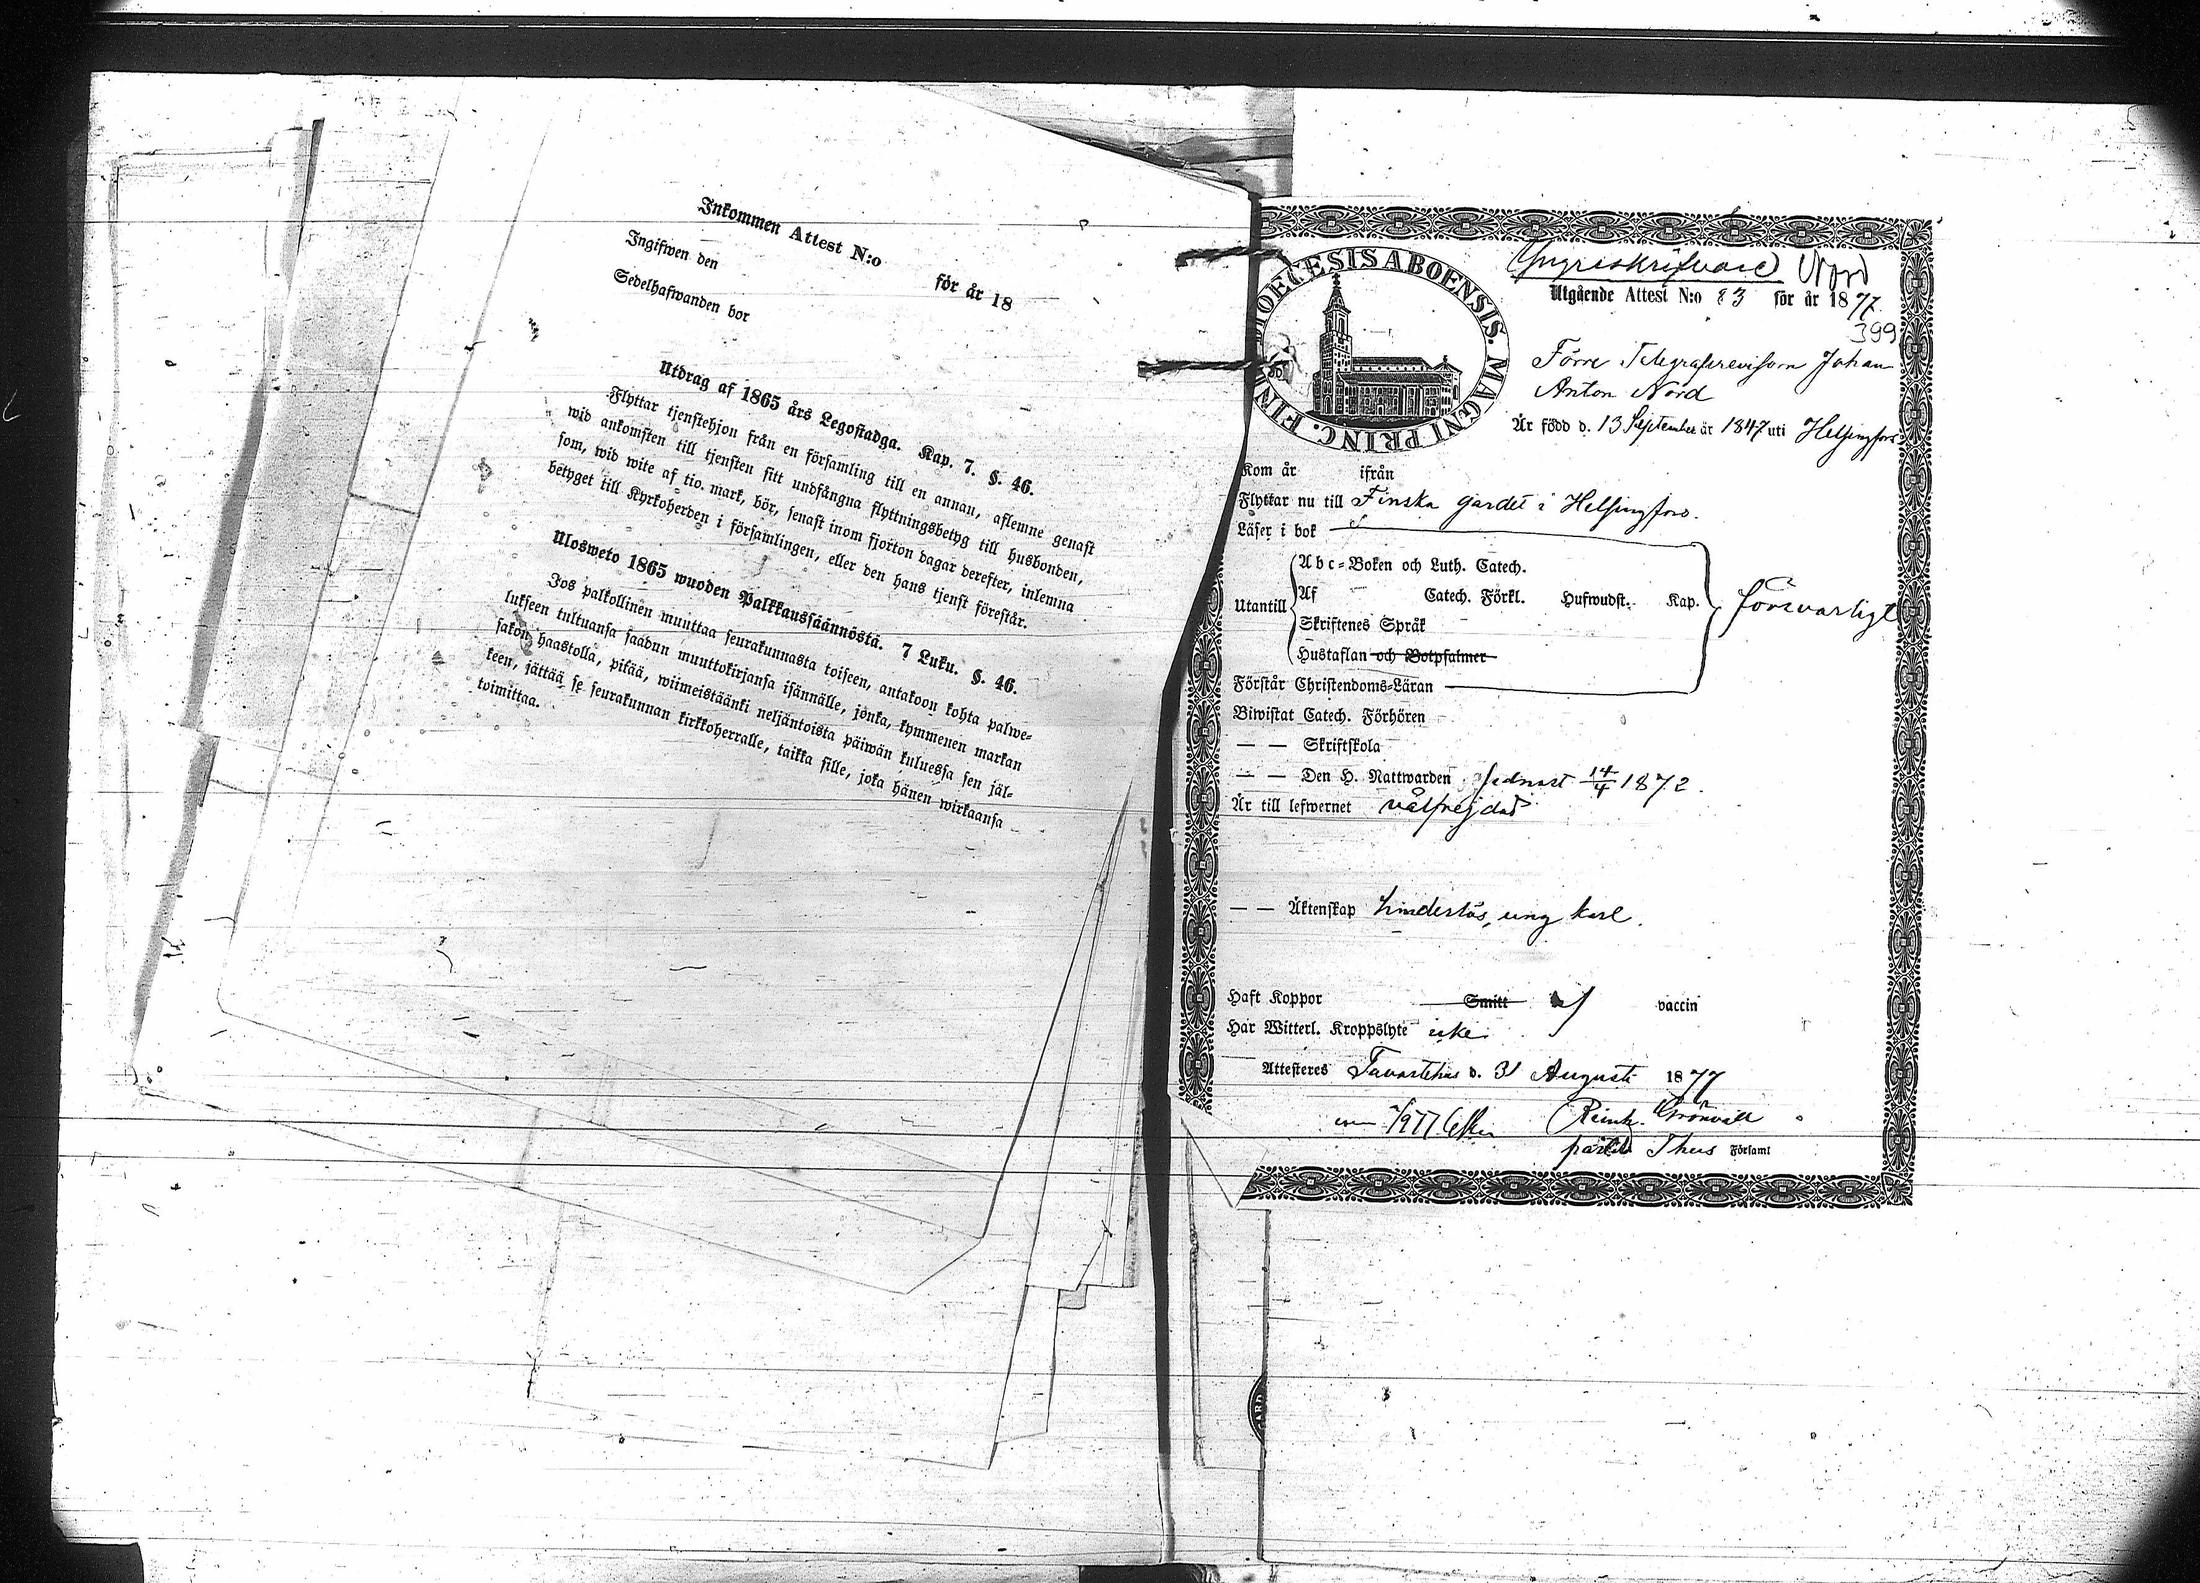 Inkommen Attest N:o för år 18
Ingifwen den
Sedelhafwanden bor
Utdrag af 1865 års Legostadga. Kap. 7. §. 46.
Flyttar tjenstehjon från en församling till en annan, aflemne genast
wid ankomsten till tjensten sitt undfångna flyttningsbetyg till husbonden,
som, wid wite af tio mark, bör, senast inom fjorton dagar derefter, inlemna
betyget till Kyrkoherden i församlingen, eller den hans tjenst förestår.
Ulosweto 1865 wuoden Palkkaussäännöstä. 7 Luku. §. 46.
Jos palkollinen muuttaa seurakunnasta toiseen, antakoon kohta palwe-
lukseen tultuansa saadun muuttokirjansa isännälle, jonka, kymmenen markan
sakon haastolla, pitää, wiimeistäänki neljäntoista päiwän kuluessa sen jäl-
keen, jättää se seurakunnan kirkkoherralle, taikka sille, joka hänen wirkaansa
toimittaa.
DIOECESIS ABOENSIS. MAGNI PRINC. FIN
Nord
Utgående Attest N:o 83 för år 1877
399
Förre Telegrafrevisorn Johan
Anton Nord
Är född d. 13 September år 1847 uti Helsingfors
Kom år ifrån
Flyttar nu till Finska gardet i Helsingfors.
Läser i bok
Utantill
Abc-Boken och Luth. Catech.
Af Catech. Förkl. Hufwudst. Kap.
Skriftenes Språk
Hustaflan och Botpsalmer
försvarligt
Förstår Christendoms-Läran
Biwistat Catech. Förhören
— — Skriftskola
— — Den H. Nattwarden sednast 14/4 1872.
Är till lefwernet välfrejdad
— — Äktenskap hinderlös, ung karl.
Haft Koppor Smitt vaccin
Har Witterl. Kroppslyte icke
Attesteres Tavastehus d. 31 Augusti 1877
Reinh. Grönvall
Thus Församl
GARD